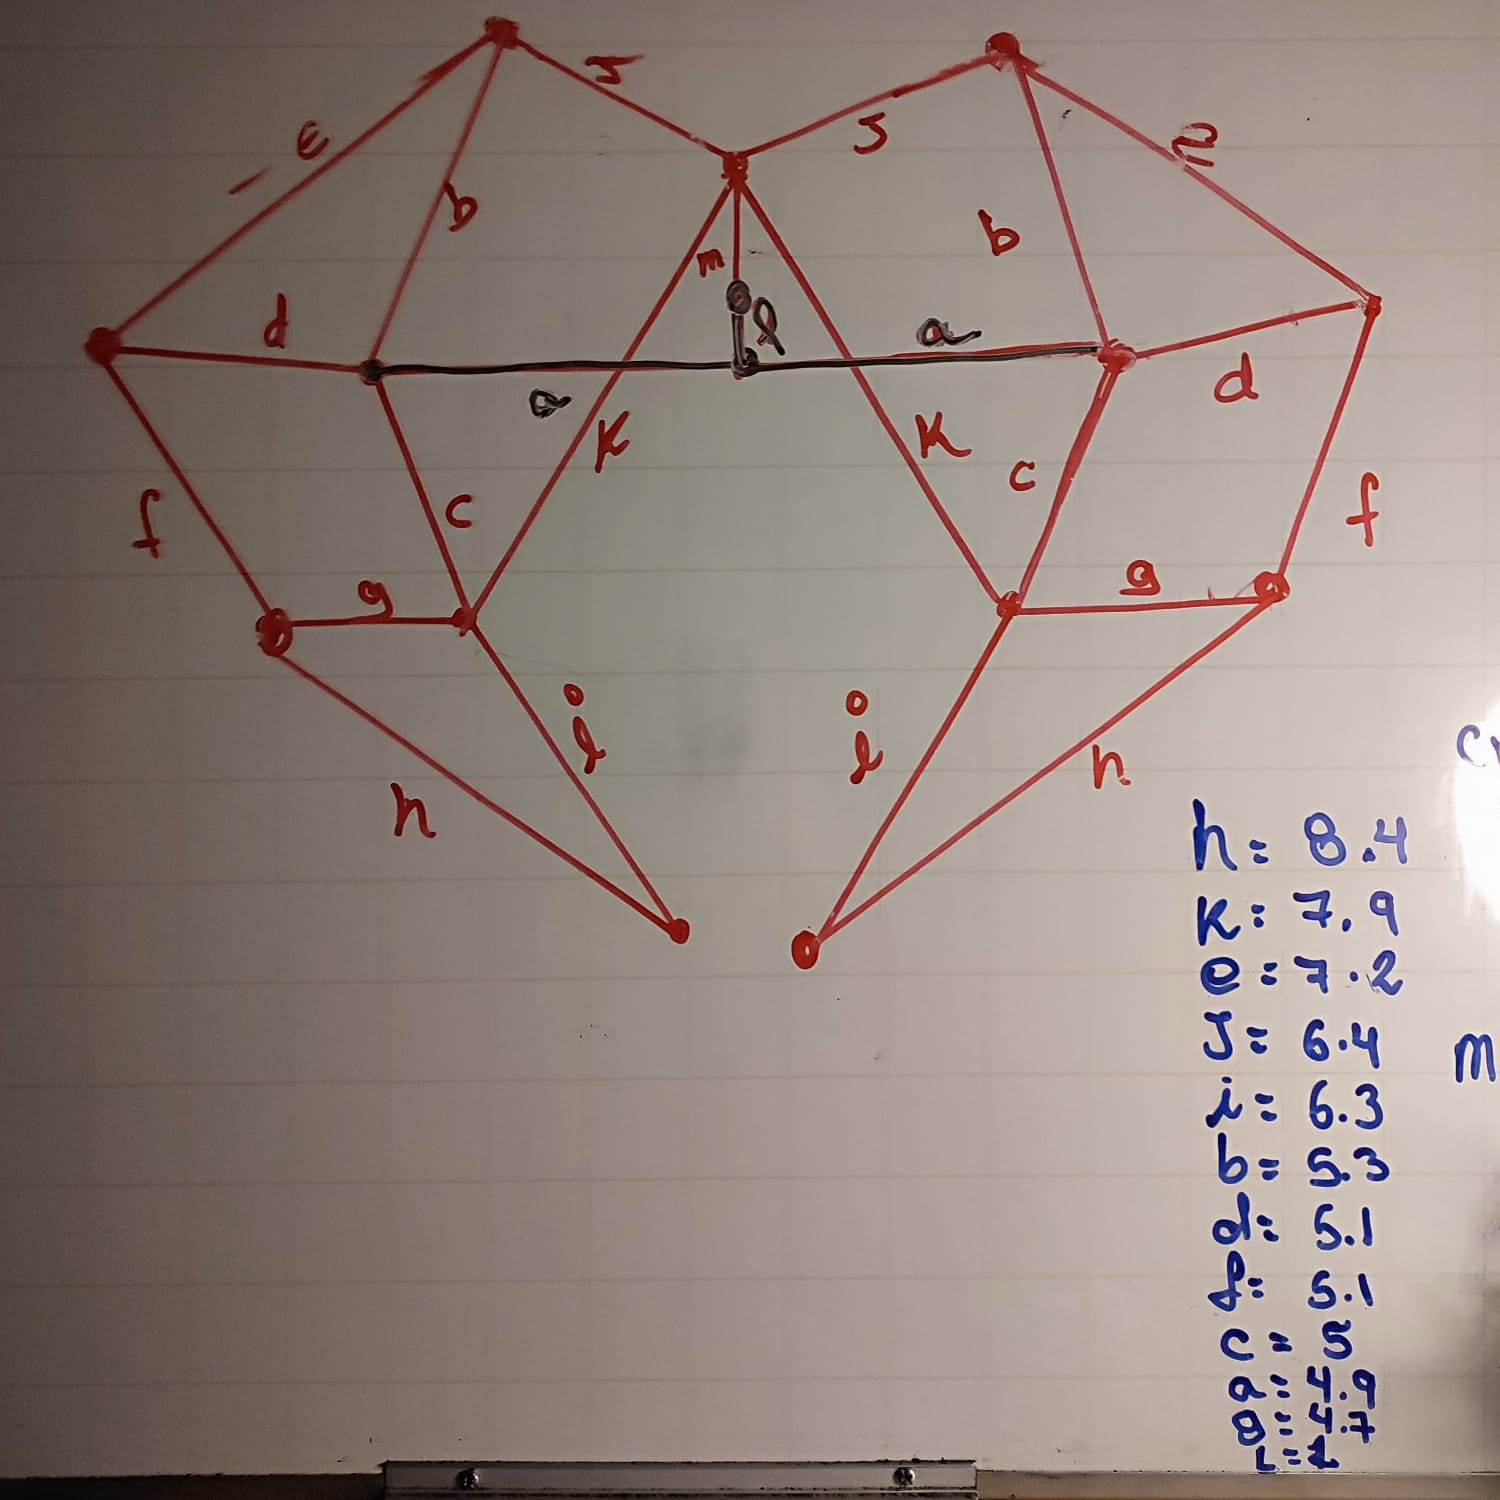 e
J
J
e
b
b
m
l
d
a
a
d
K
K
c
c
f
f
g
g
i
i
h
h
h= 8.4
K= 7.9
e= 7.2
J= 6.4
m
i= 6.3
b= 5.3
d= 5.1
f= 5.1
c= 5
a= 4.9
g= 4.7